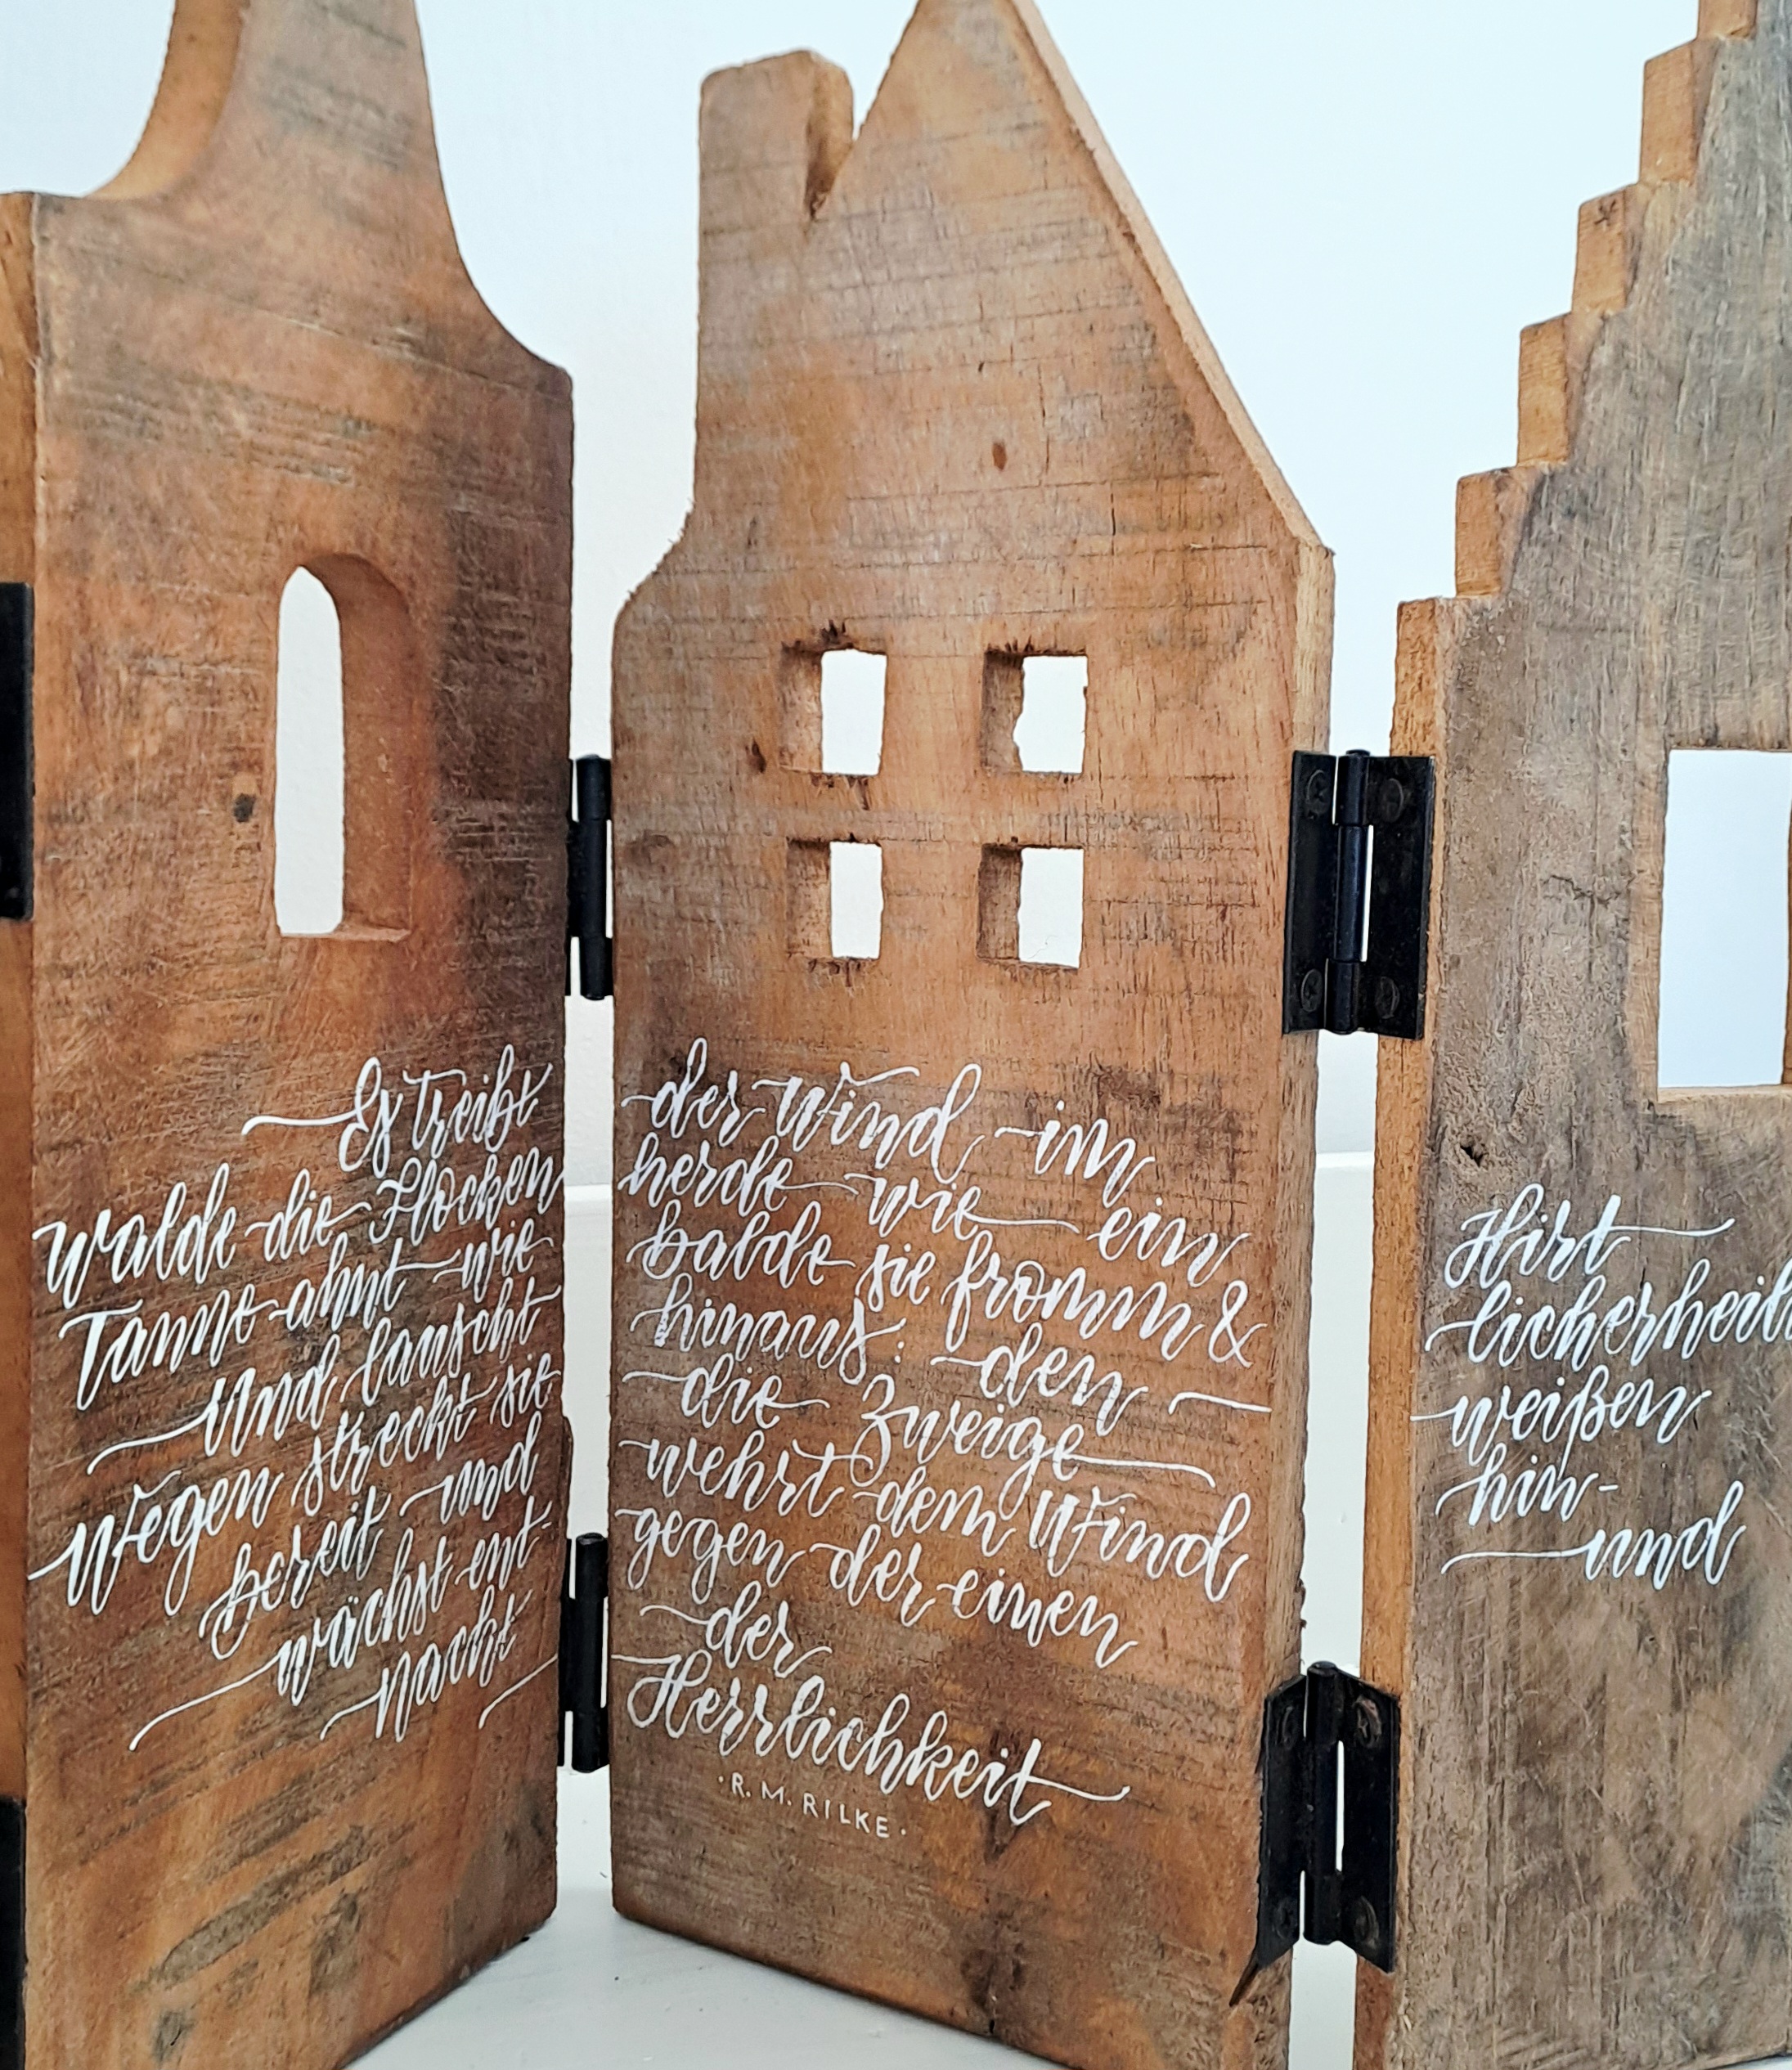 Es treibt der Wind im
walde die Flocken herde wie ein Hirt
Tanne ahnt wie balde sie fromm & licherheil
und lauscht hinaus: den weißen
Wegen streckt sie die Zweige hin-
bereit und wehrt dem Wind und
wächst ent- gegen der einen
Nacht der
Herrlichkeit
· R. M. RILKE ·